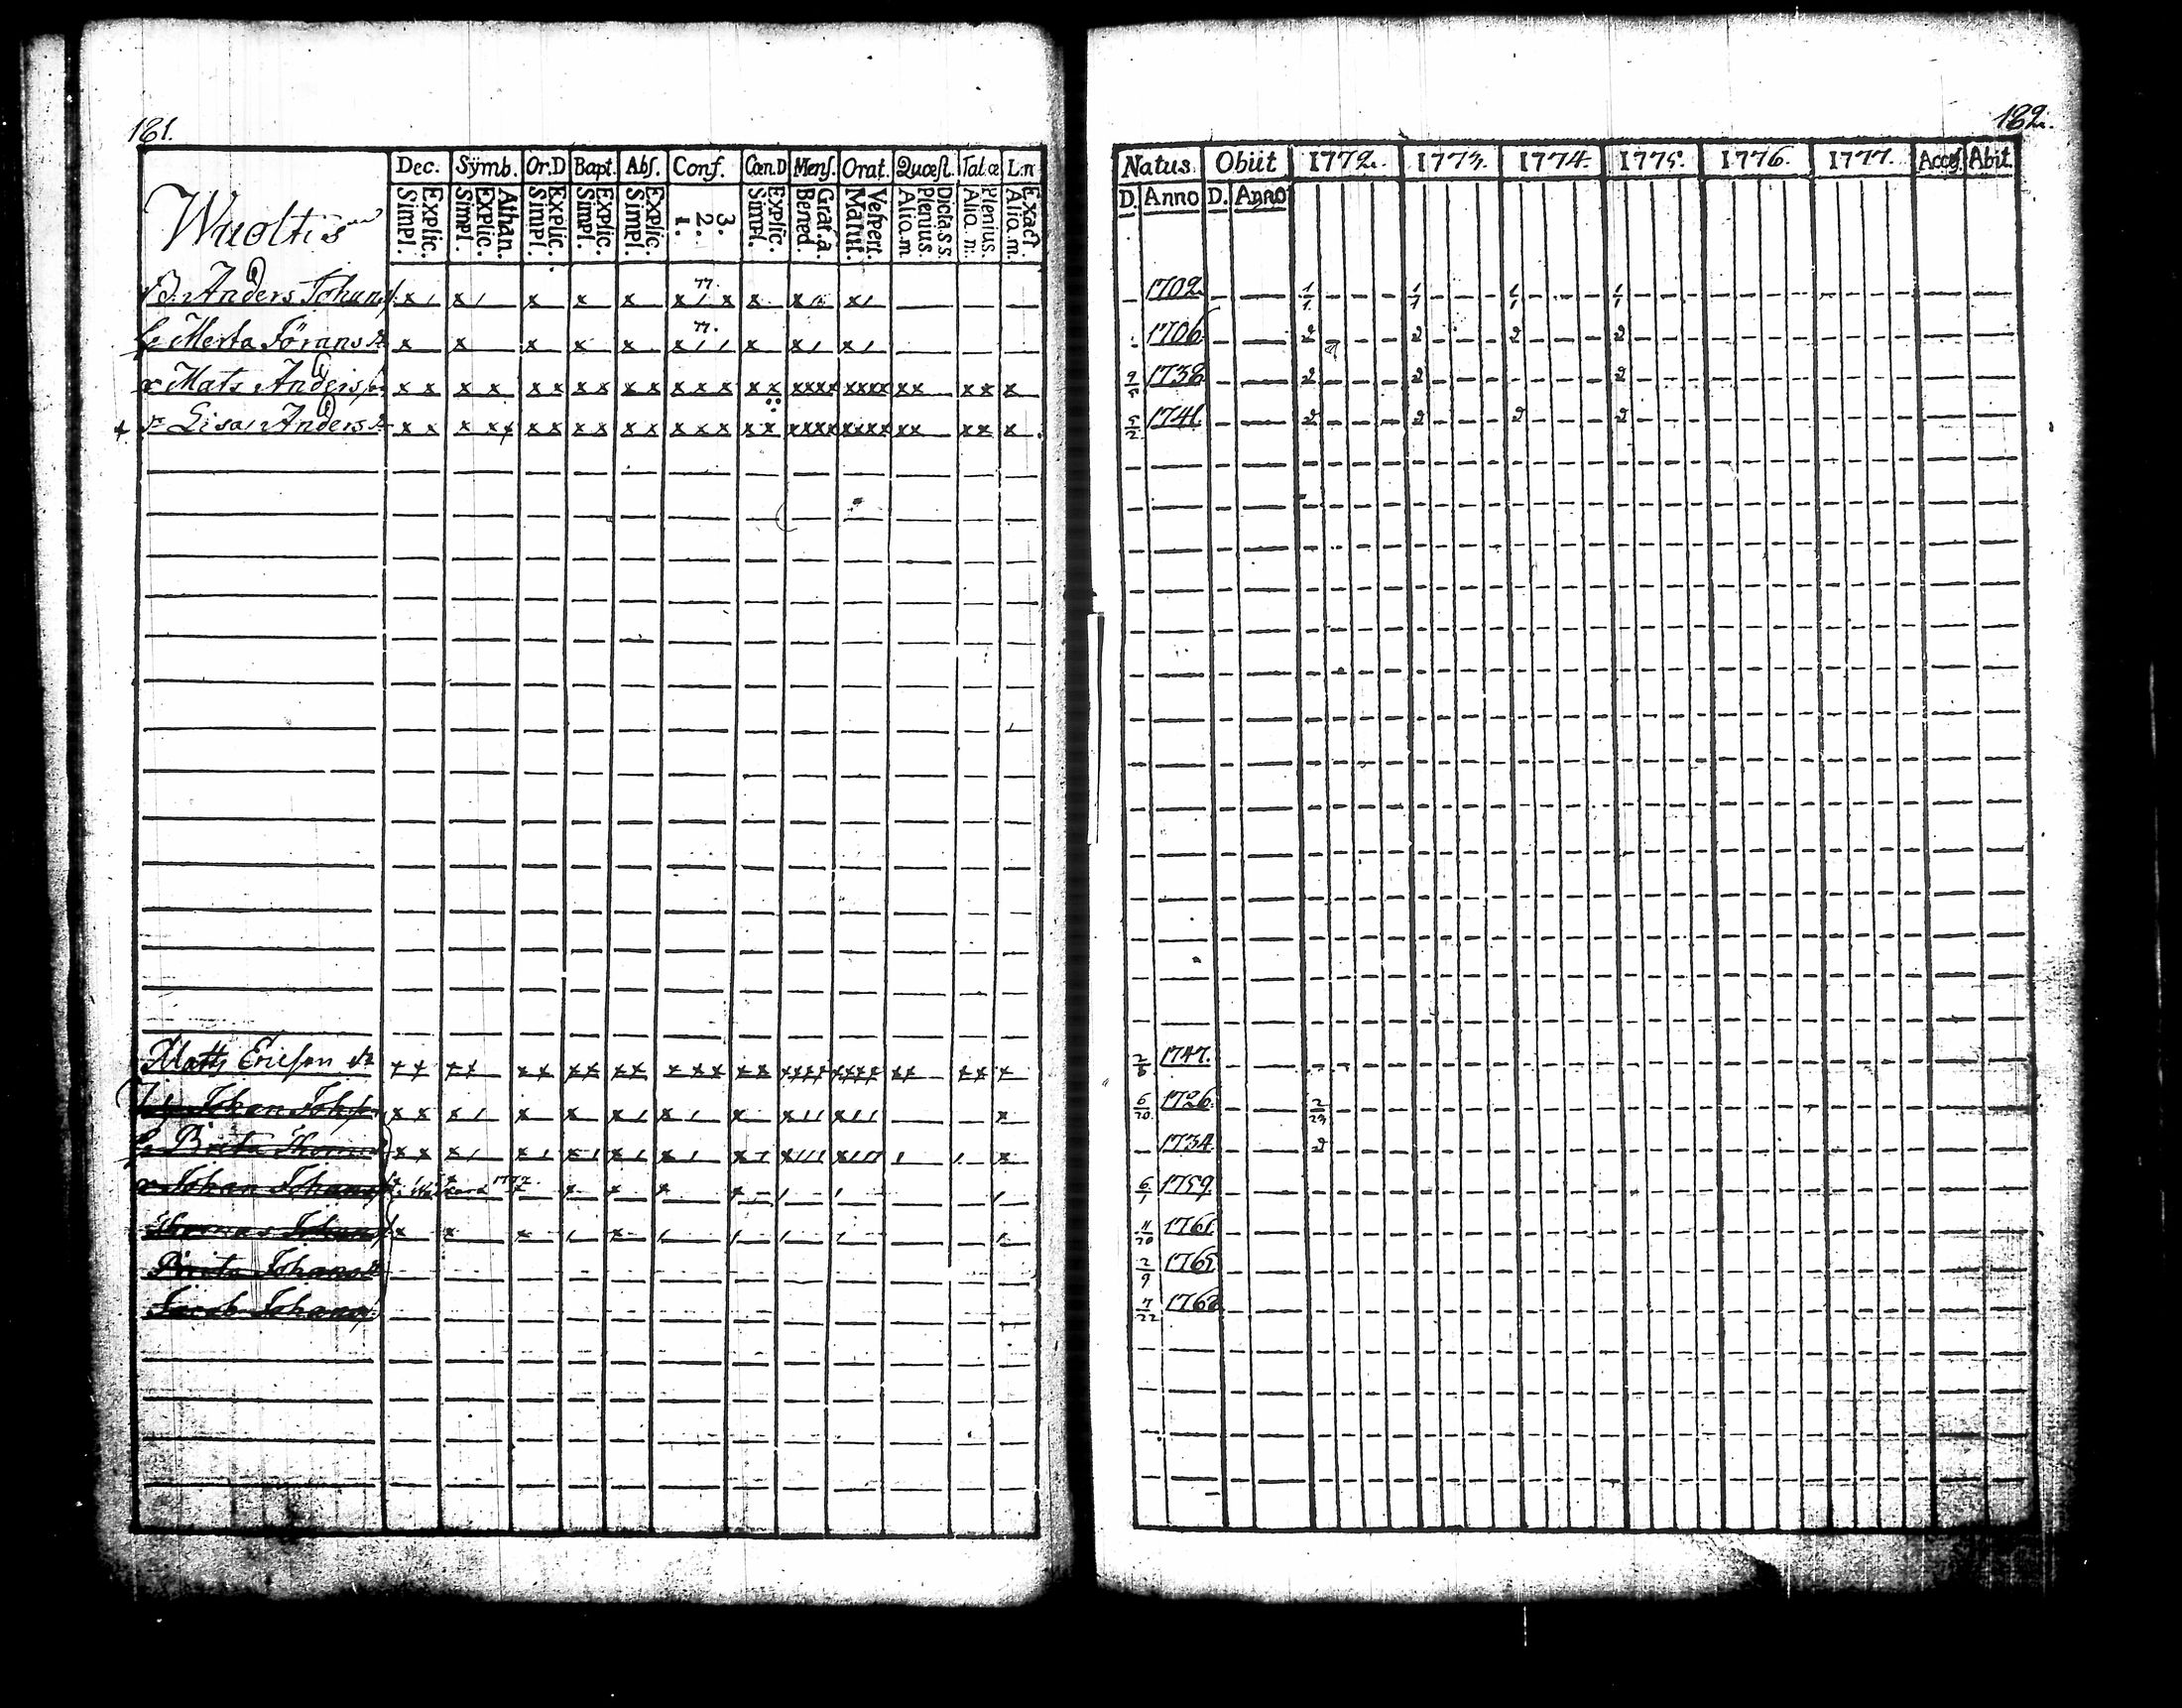 181.
Dec. Symb. Or.D Bapt. Abſ. Conf. Cœn.D Menſ. Orat. Quæſt. Tal.æ L.n
Simpl. Explic. Simpl. Explic. Athan. Simpl. Explic. Simpl. Explic. Simpl. Explic. 1. 2. 3. Simpl. Explic. Bened. Grat.a. Matut. Veſpert. Alia.m Plenius. Dicta.s.s. Alia.m. Plenius. Alia.m. Exact
Wuoltis
B. Anders Johans. x / x / x x x 77. x / x x x x /
h. Merta Jörans dr x x x x x 77. x / / x x / x /
x Mats Anders x x x x x x x x x x x x x x x xxxx xxxx xx xx x
+ Lisa Anders dr x x x x x x x x x x x x x x x x xxxx xxxx xx xx x
Matts Ericson x x x x x x x x x x x x x x x xxxx xxxx xx xx x
Johan Joh x x x / x x x / x / x x// x// x
h. Brita Thoms x x x / x / x / x / x / x x/// x/// / / x
Johan Johans 1777 x x x x / / /
Thomas Johans x x x / x / / / / /
Brita Johans dr
Jacob Johans
182.
Natus. Obiit 1772. 1773. 1774. 1775. 1776. 1777. Acceſ. Abit.
D. Anno D. Anno
1702 1/1 1/1 1/1 1/1
1706 2 2 2 2
9/5 1738 2 2 2
5/2 1741 2 2 2 2
2/6 1747.
6/20 1726. 2/23
1734. 2
6/1 1759
11/20 1761
2/9 1765
7/22 1768